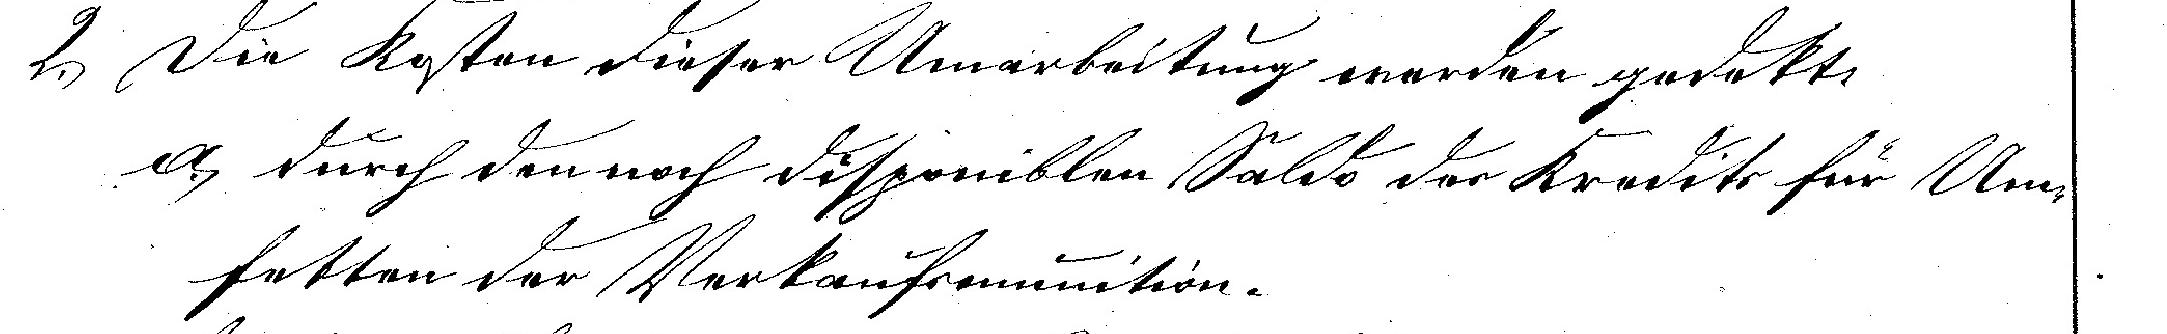 2, Die Kosten dieser Umarbeitung werden gedekt:
a, durch den noch disponiblen Saldo des Kredits für Um-
fetten der Verkaufsmunition.